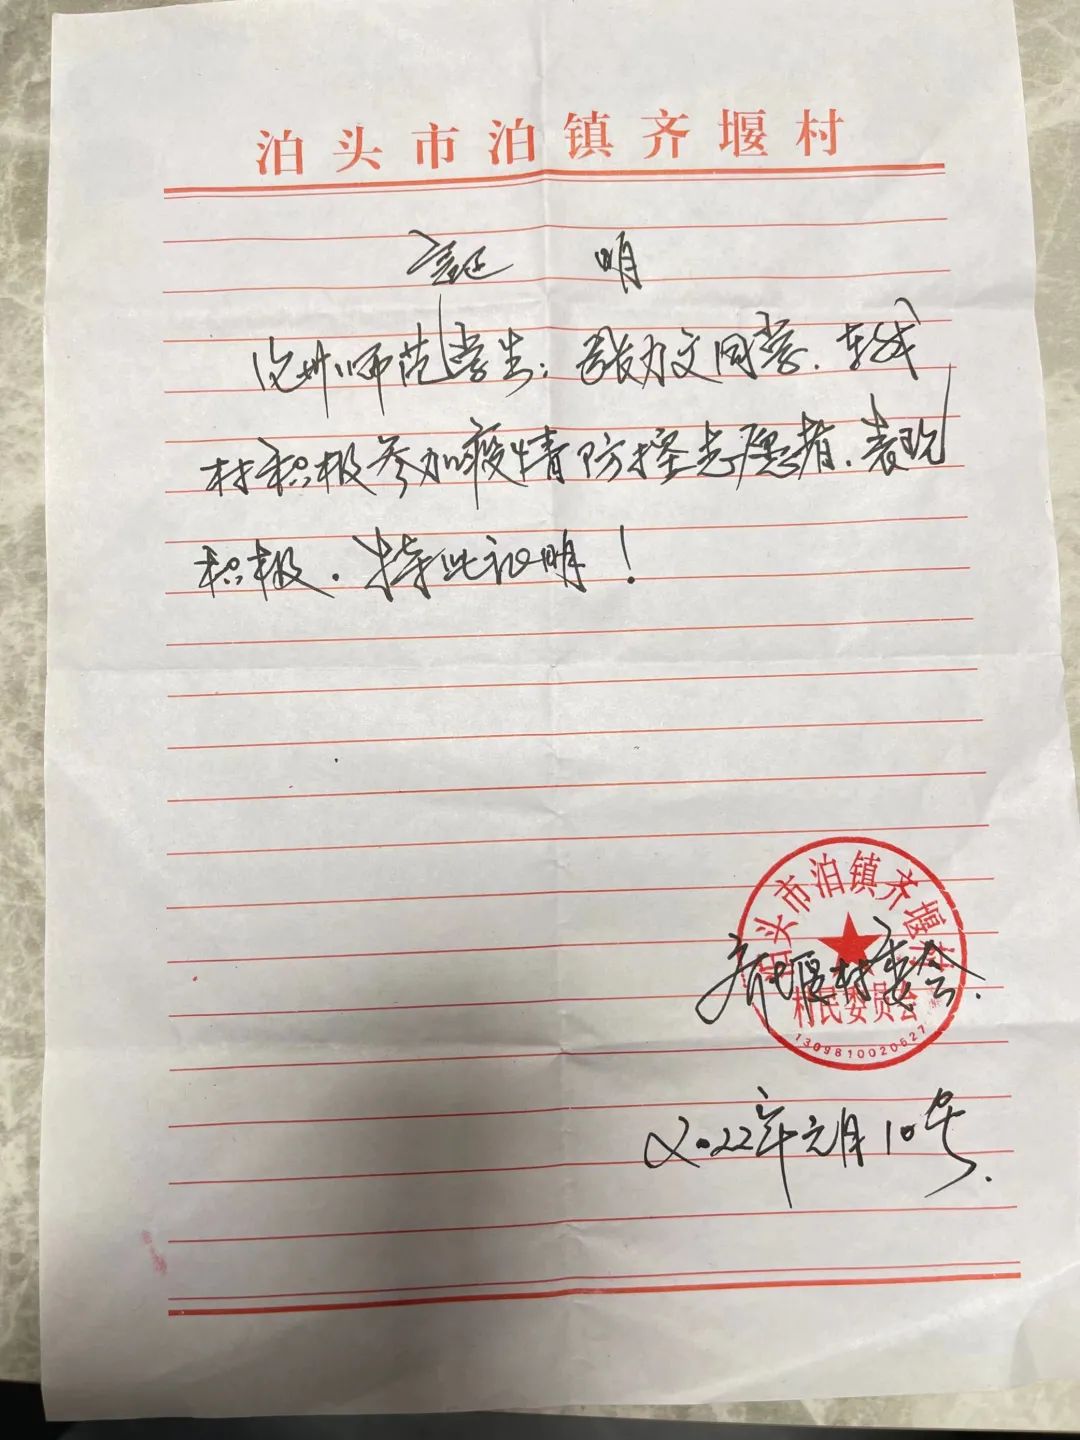 泊头市泊镇齐堰村
证 明
沧州师范学生：张力文同学．在我
村积极参加疫情防控志愿者．表现
积极．特此证明！
泊头市泊镇齐堰村
村民委员会
1309810020527
齐堰村委会.
2022年元月10号.